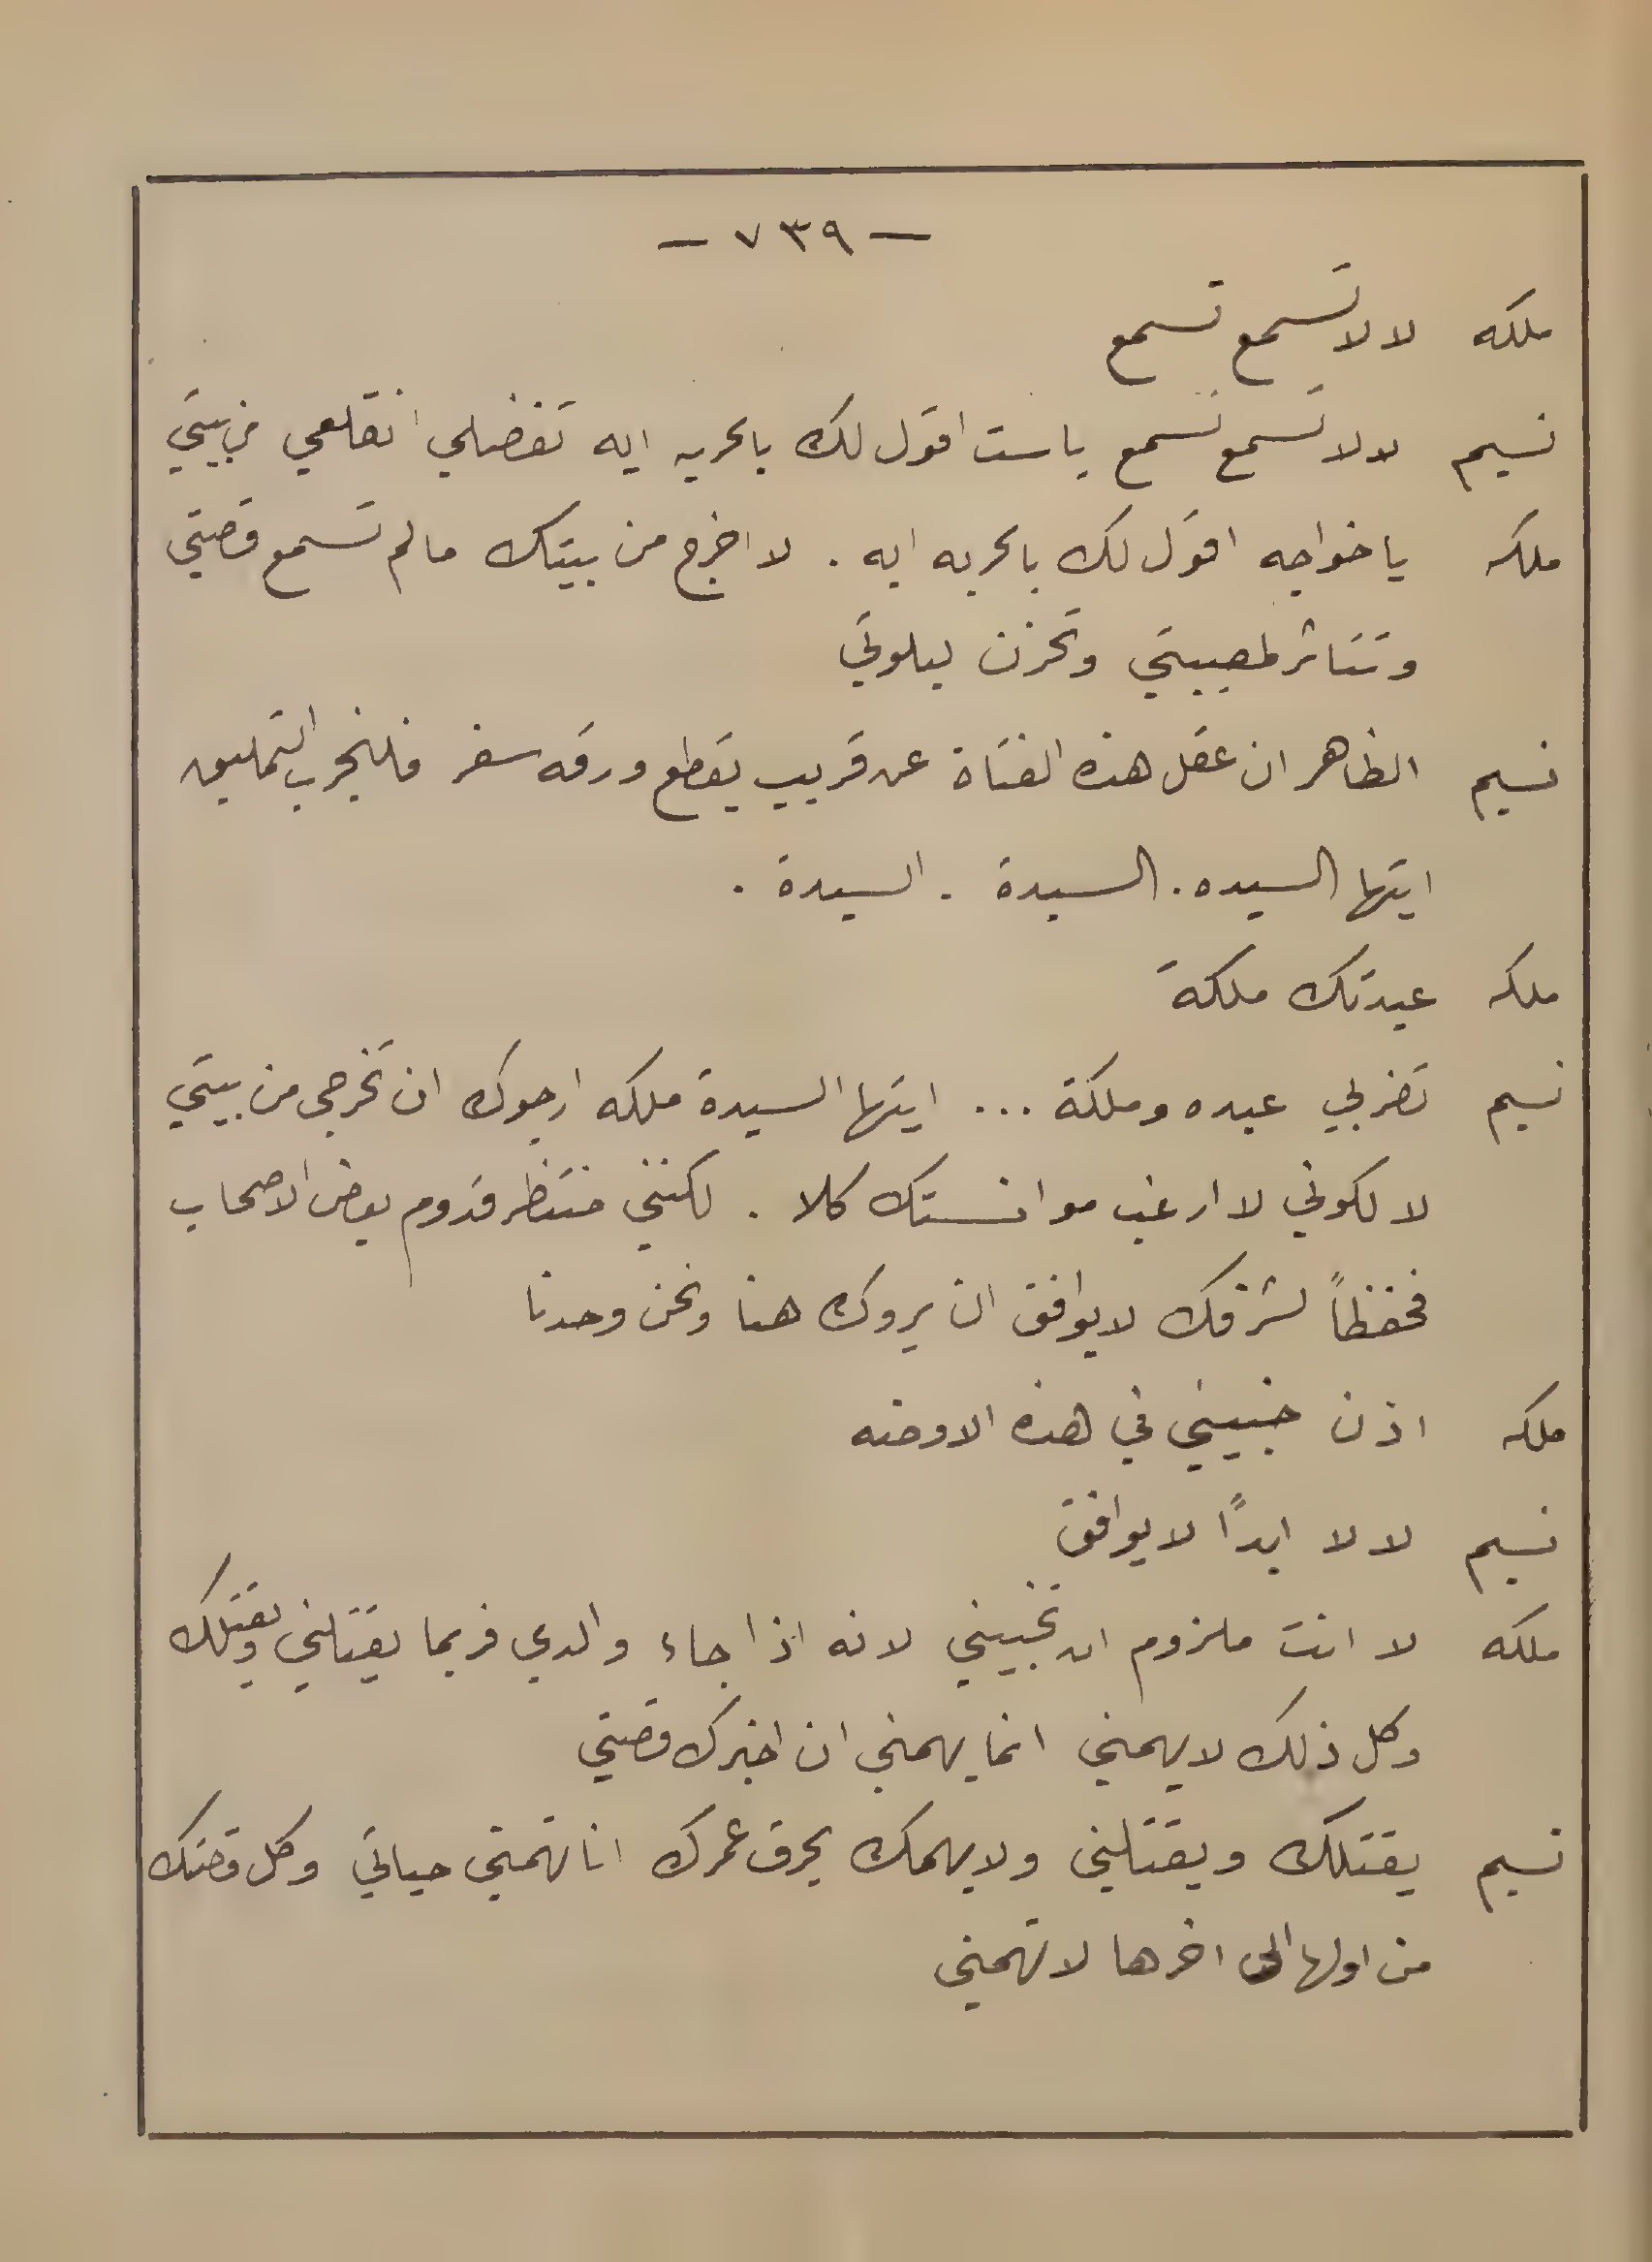 — ٧٣٩ —
ملكه لا لا تسمع تسمع
نسيم لا لا تسمع تسمع ياست اقول لك بالحريه ايه تفضلي انقلعي من بيتي
ملكه ياخواجه اقول لك بالحريه ايه . لا اخرج من بيتك مالم تسمع قصتي
وتتاثر لمصيبتي وتحزن لبلوتي
نسيم الظاهر ان عقل هذه الفتاة عن قريب يقطع ورقه سفر فلنجرب التمليق
ايتها السيده . السيدة . السيدة .
ملكه عبدتك ملكة
نسيم تضربي عبده وملكة ... ايتها السيدة ملكه ارجوك ان تخرجي من بيتي
لا لكوني لا ارغب موانستك كلا . لكنني منتظر قدوم بعض الاصحاب
فحفظاً لشرفك لايوافق ان يروك هنا ونحن وحدنا
ملكه اذن خبيني في هذه الاوضه
نسيم لا لا ابداً لا يوافق
ملكه لا انت ملزوم ان تخبيني لانه اذا جاء والدي فربما يقتلني ويقتلك
وكل ذلك لايهمني انما يهمني ان اخبرك قصتي
نسيم يقتلك ويقتلني ولايهمك يحرق عمرك انا تهمني حياتي وكل قصتك
من اولها الى اخرها لا تهمني